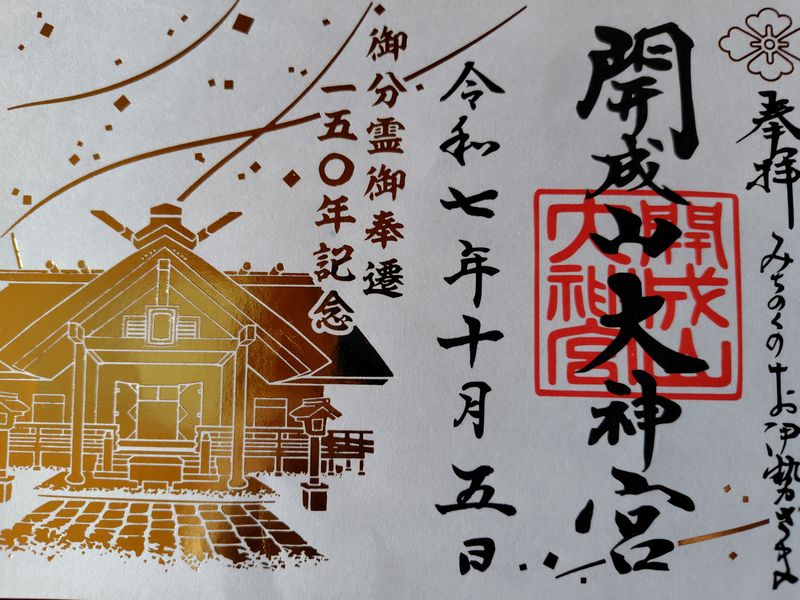 奉拝
みちのくのお伊勢さま
開成山大神宮
開成山
大神宮
令和七年十月五日
御分霊御奉遷
一五〇年記念